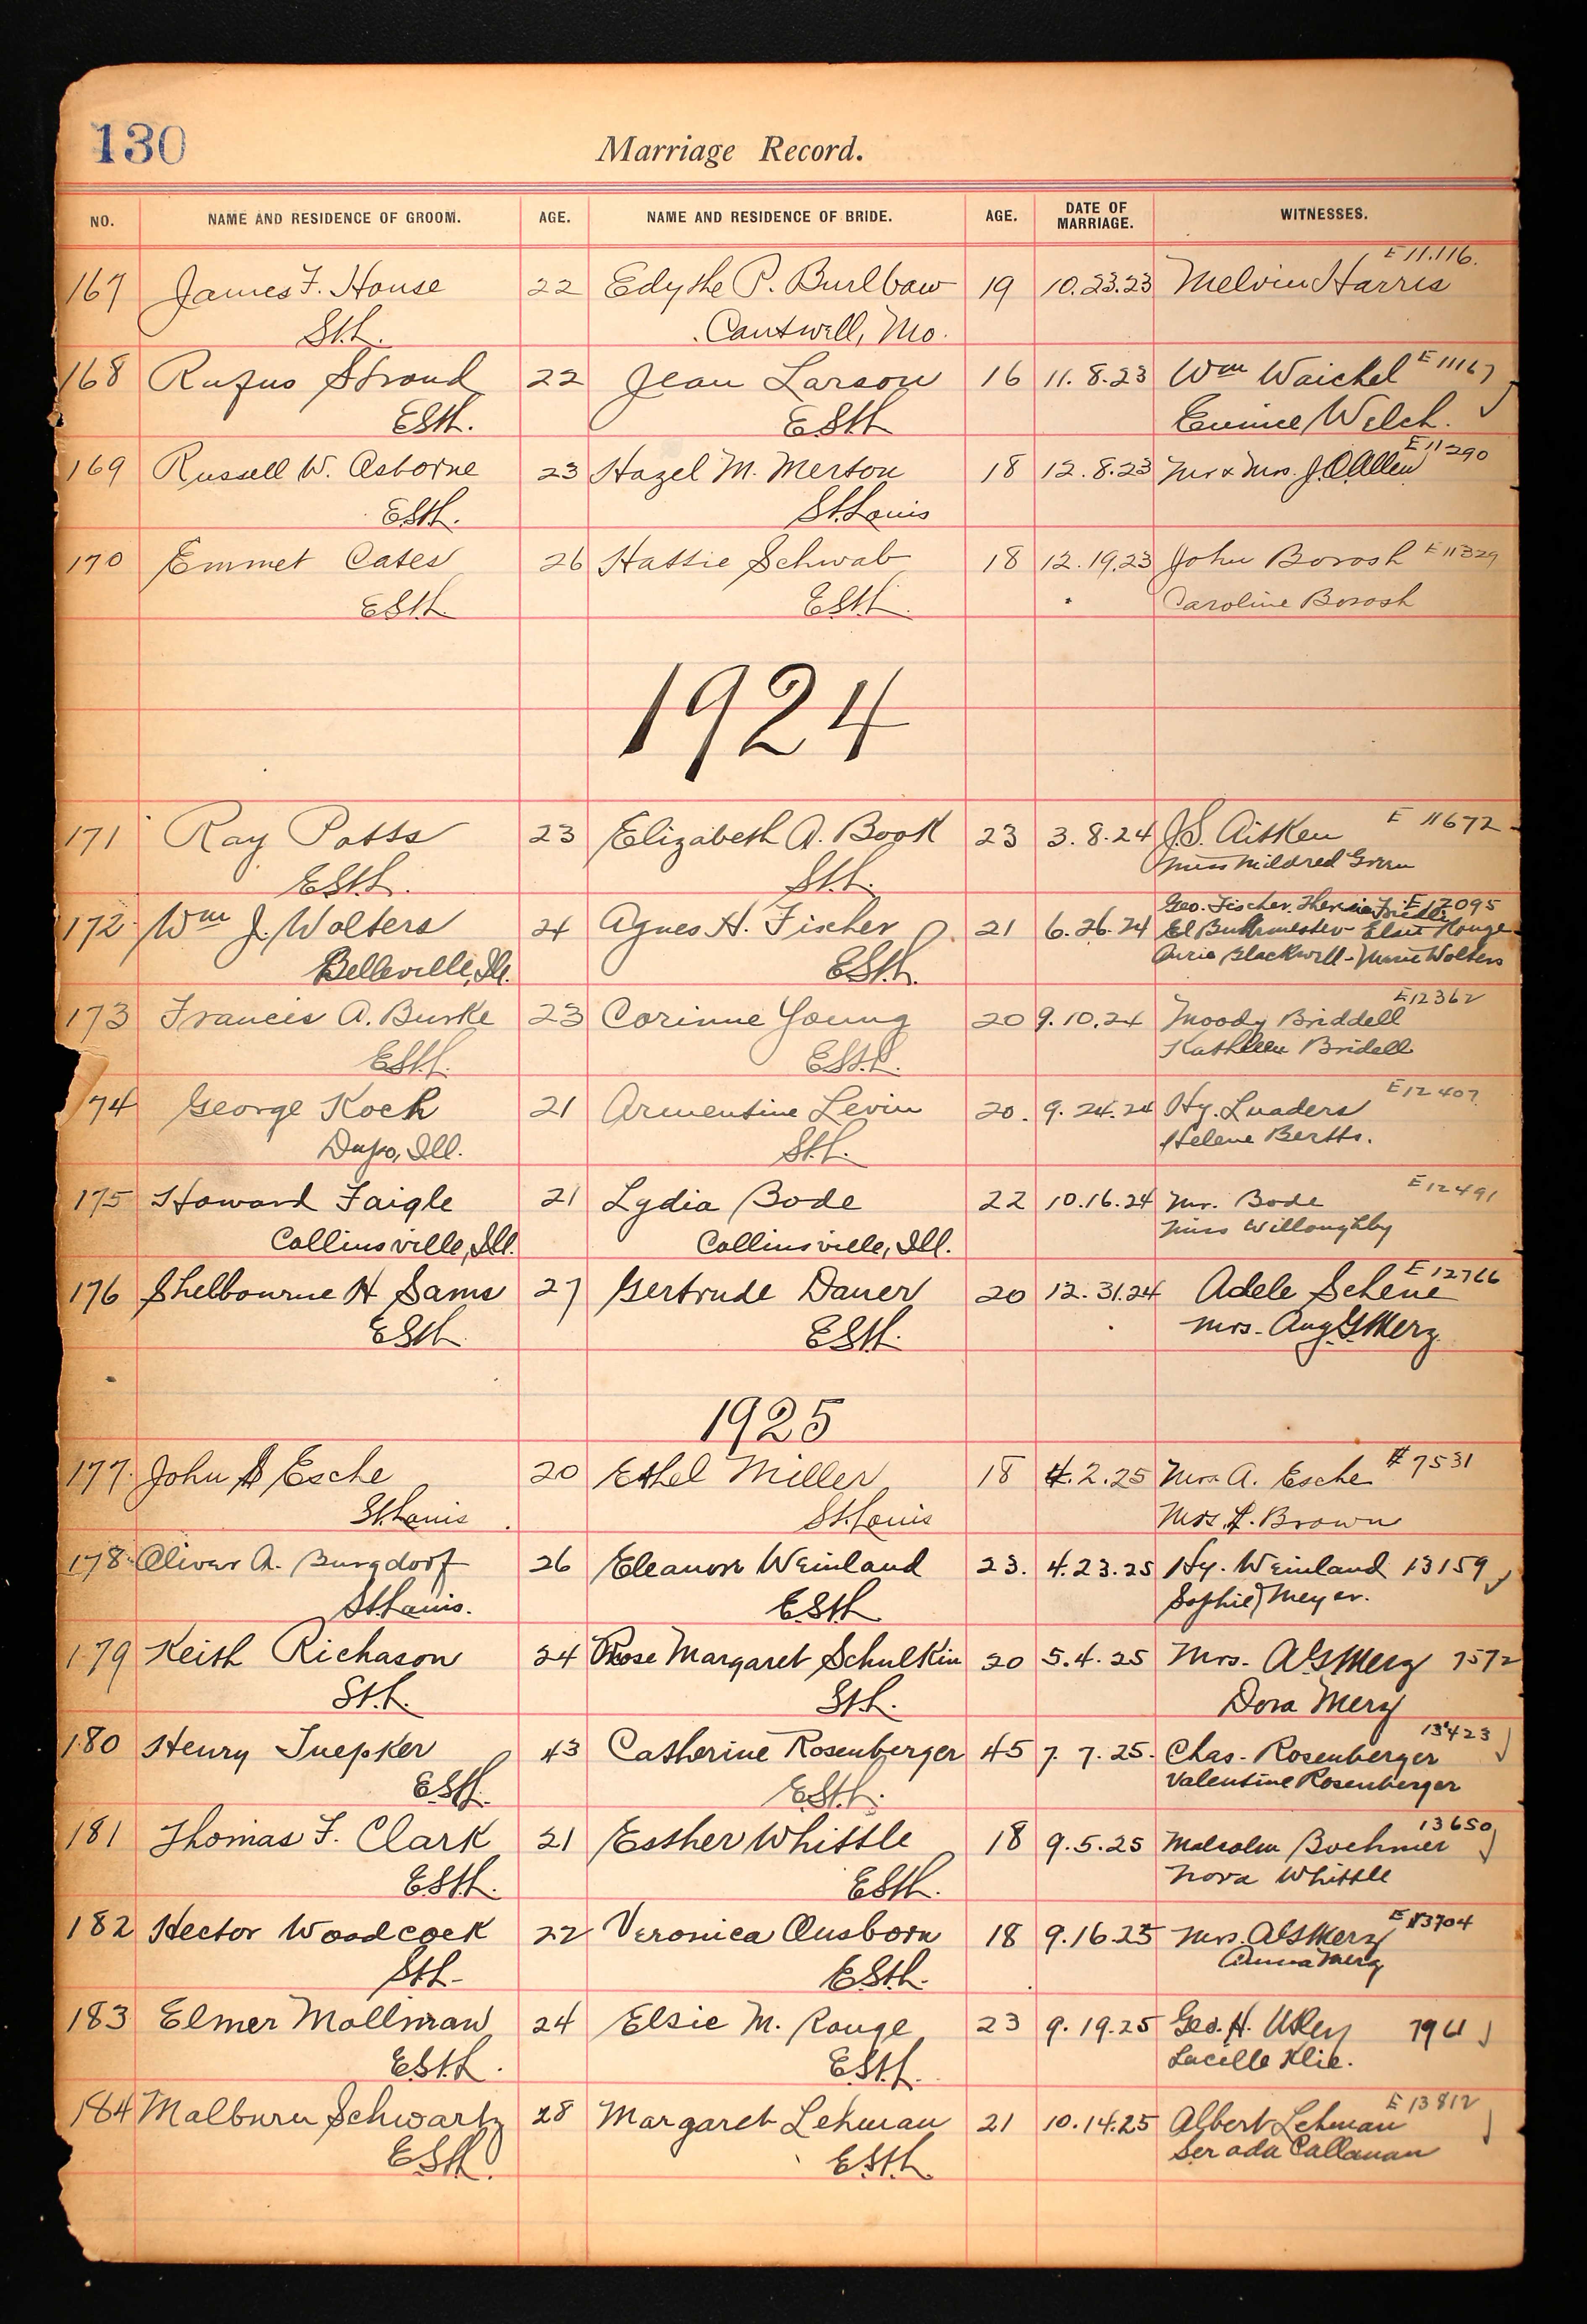 130
Marriage Record.
NO. NAME AND RESIDENCE OF GROOM. AGE. NAME AND RESIDENCE OF BRIDE. AGE. DATE OF MARRIAGE. WITNESSES.
E 11.116.
167 James F. House 22 Edythe P. Burlbaw 19 10.23.23 Melvin Harris
St.L. Cantwell, Mo.
168 Rufus Stroud 22 Jean Larson 16 11.8.23 Wm Waichel E 11167
E.St.L. E.St.L Eunice Welch.
E 11290
169 Russell W. Osborne 23 Hazel M. Merton 18 12.8.23 Mr & Mrs. J.O. Allen
E.St.L. St. Louis
170 Emmet Cates 26 Hattie Schwab 18 12.19.23 John Borosh E 11329
E.St.L. E.St.L. Caroline Borosh
1924
171 Ray Potts 23 Elizabeth A. Book 23 3.8.24 J.S. Aitken E 11672
E.St.L. St.L. Miss Mildred Green
Geo. Fischer. E 12095
172 Wm J. Wolters 24 Agnes H. Fischer 21 6.26.24 El Buhrmester Elsie Rouge
Belleville, Ill. E.St.L. Blackwell - Marie Wolters
E 12362
173 Francis A. Burke 23 Corinne Young 20 9.10.24 Moody Briddell
E.St.L. E.St.L. Kathleen Bridell
174 George Koch 21 Armentine Levin 20. 9.24.24 Hy. Luaders E 12407
Dupo, Ill. St.L. Helene Bertts.
175 Howard Faigle 21 Lydia Bode 22 10.16.24 Mr. Bode E 12491
Collinsville, Ill. Collinsville, Ill. Miss Willoughby
176 Shelbourne H Sams 27 Gertrude Daner 20 12.31.24 Adele Schene E 12766
E.St.L. E.St.L. Mrs. Aug G Merz
1925
177. John A Esche 20 Ethel Miller 18 4.2.25 Mrs A. Esche # 7531
St. Louis St. Louis Mrs. L. Brown
178 Oliver A. Burgdorf 26 Eleanor Weinland 23. 4.23.25 Hy. Weinland 13159
St. Louis. E.St.L Sophie Meyer.
179 Keith Richason 24 Rose Margaret Schulkin 20 5.4.25 Mrs. A G Merz 7572
St.L. St.L. Dora Merz
13423
180 Henry Tuepker 43 Catherine Rosenberger 45 7.7.25. Chas. Rosenberger
E.St.L. E.St.L. Valentine Rosenberger
13650
181 Thomas F. Clark 21 Esther Whittle 18 9.5.25 Malcolm Boehmer
E.St.L. E.St.L. Nova Whittle
182 Hector Woodcock 22 Veronica Ausborn 18 9.16.25 Mrs. A G Merz E 13704
St.L. E.St.L. Anna Merz
183 Elmer Mollman 24 Elsie M. Rouge 23 9.19.25 Geo. H. Wiley
E.St.L. E.St.L. Lucille Klie.
E 13812
184 Malburn Schwartz 28 Margaret Lehman 21 10.14.25 Albert Lehman
E.St.L. E.St.L. Callanan